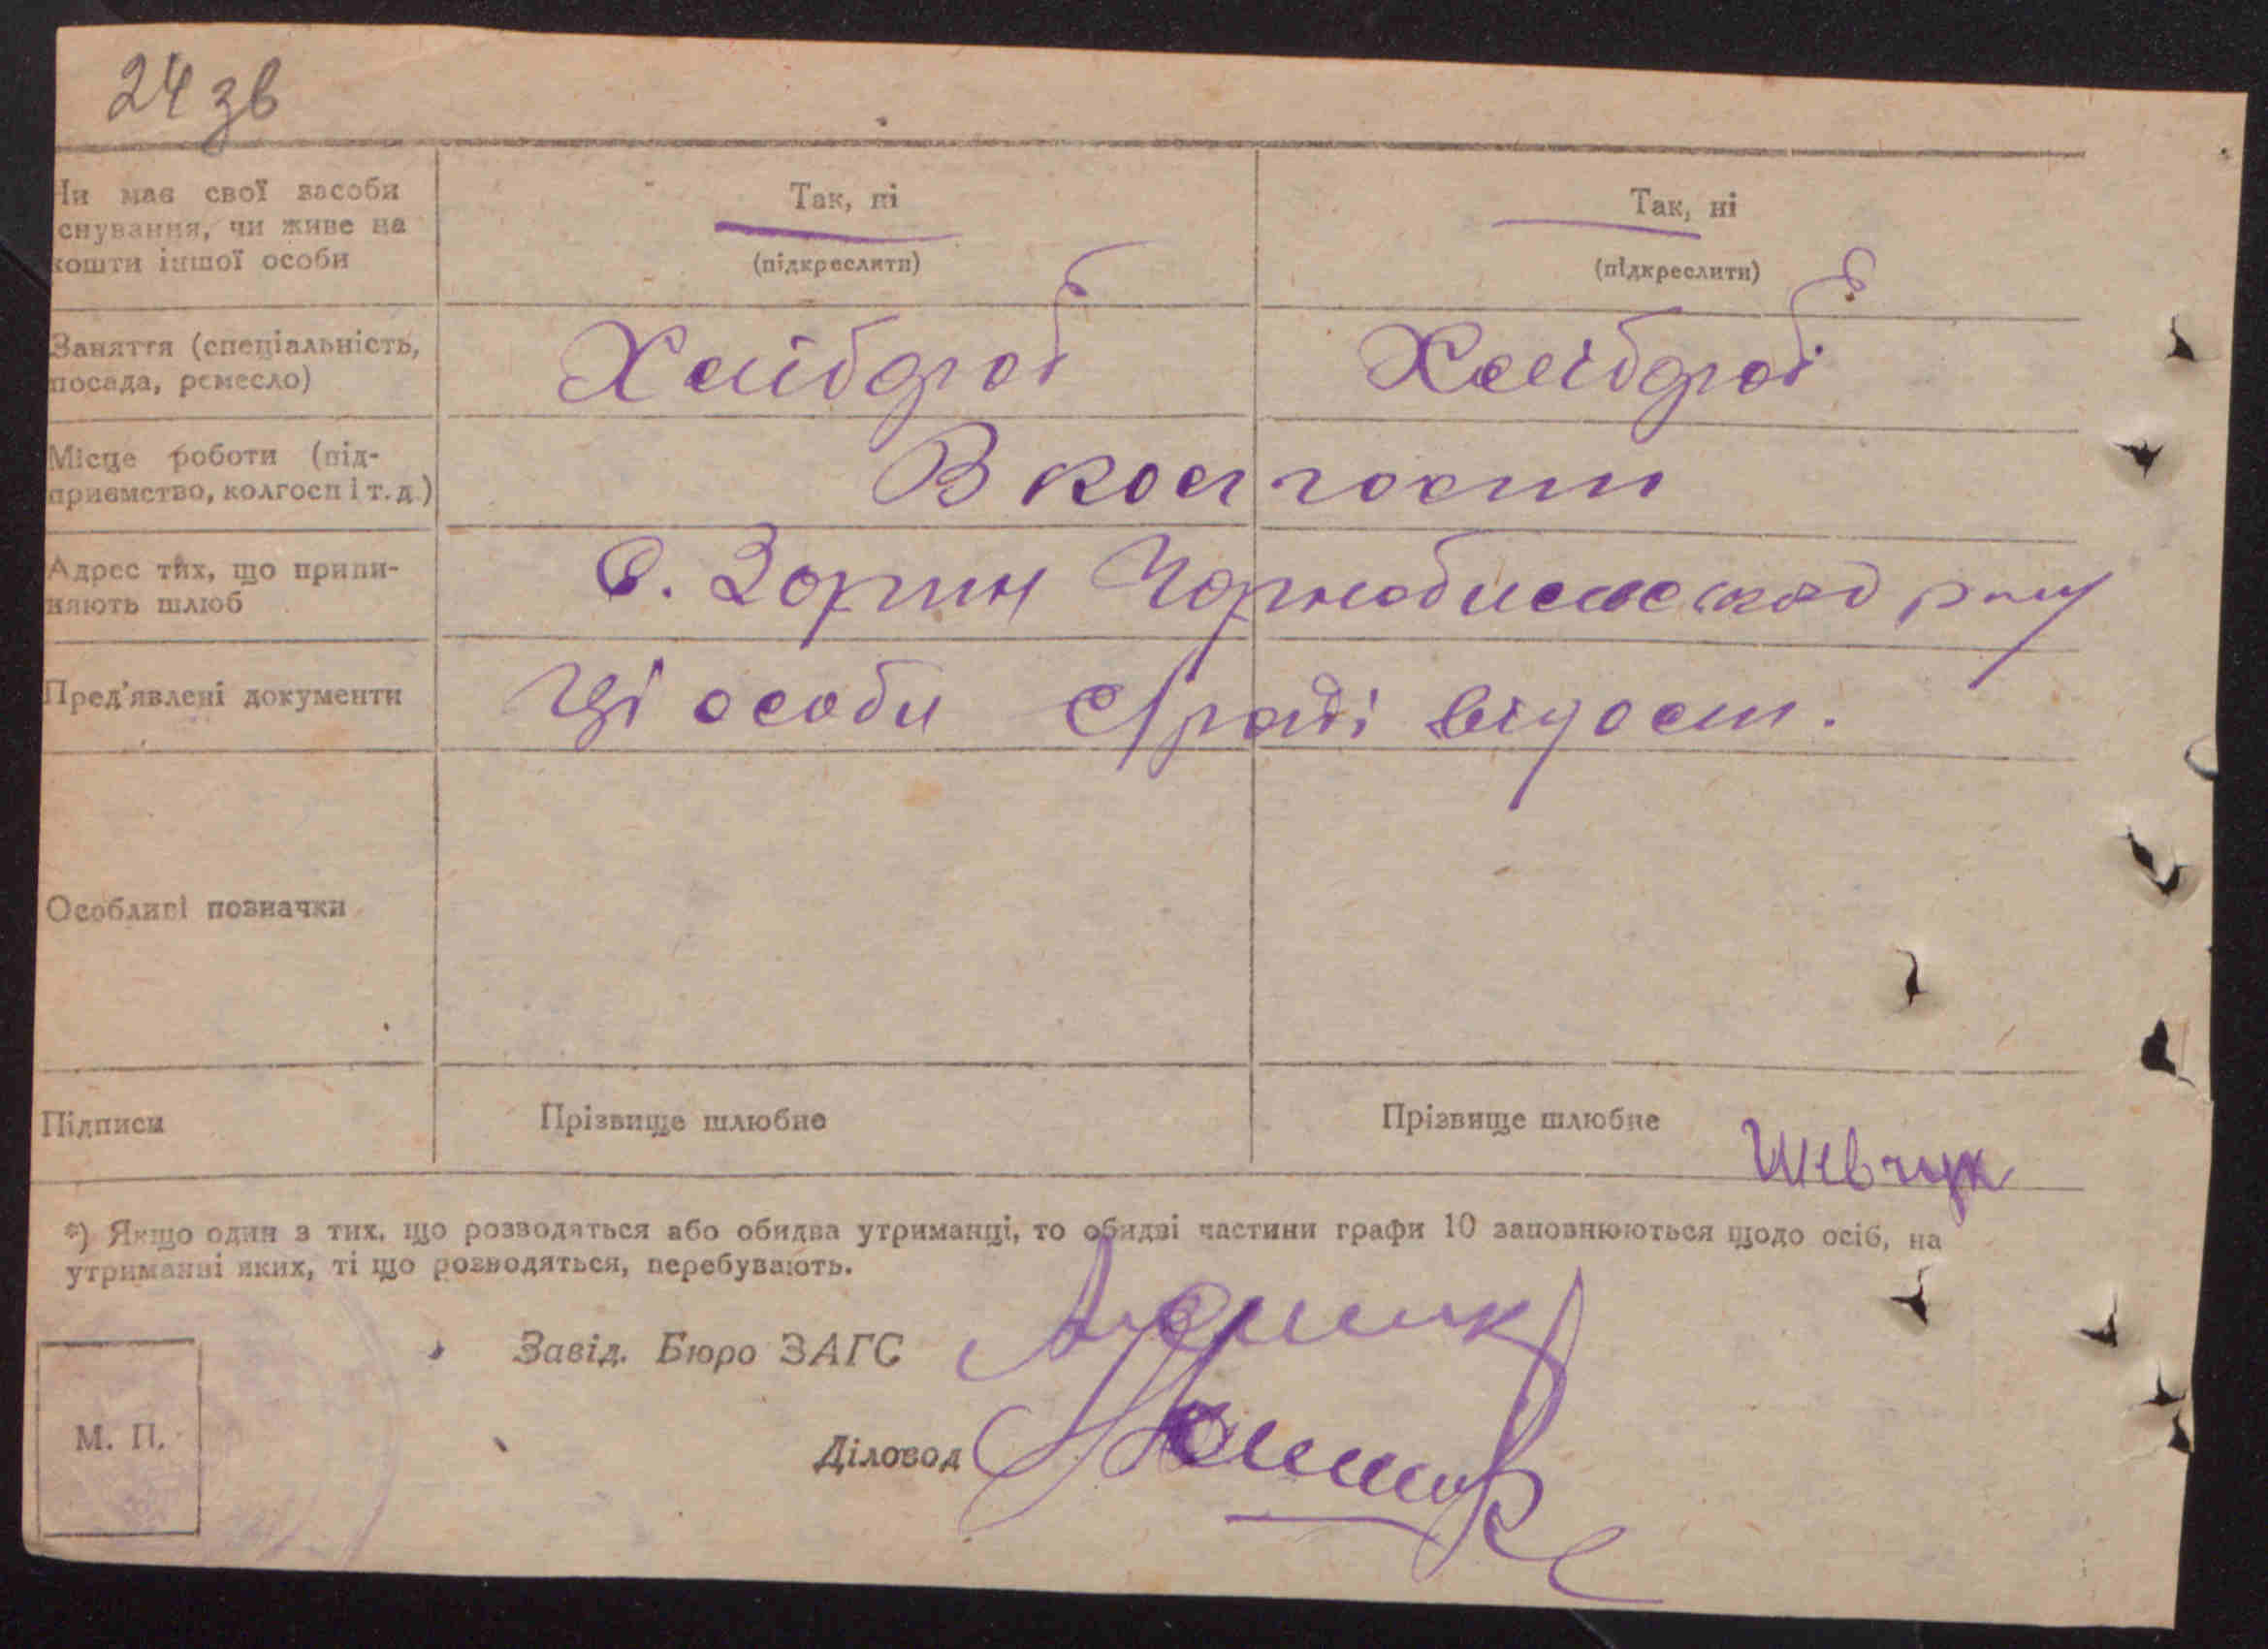 24 зв
Чи має свої засоби
снування, чи живе на
кошти іншої особи
Так, ні
(підкреслити)
Так, ні
(підкреслити)
Заняття (спеціальність,
посада, ремесло)
Хлібороб
Хлібороб
Місце роботи (під-
приємство, колгосп і т. д.)
В колгоспи
Адрес тих, що припи-
няють шлюб
С. Зорин Чорнобильської р-ну
Пред'явлені документи
Ці особи с/раді відоми.
Особливі позначки
Підписи
Прізвище шлюбне
Прізвище шлюбне
Шевчук
*) Якщо один з тих, що розводяться або обидва утриманці, то обидві частини графи 10 заповнюються щодо осіб, на
утриманні яких, ті що розводяться, перебувають.
Завід. Бюро ЗАГС
Діловод
М. П.